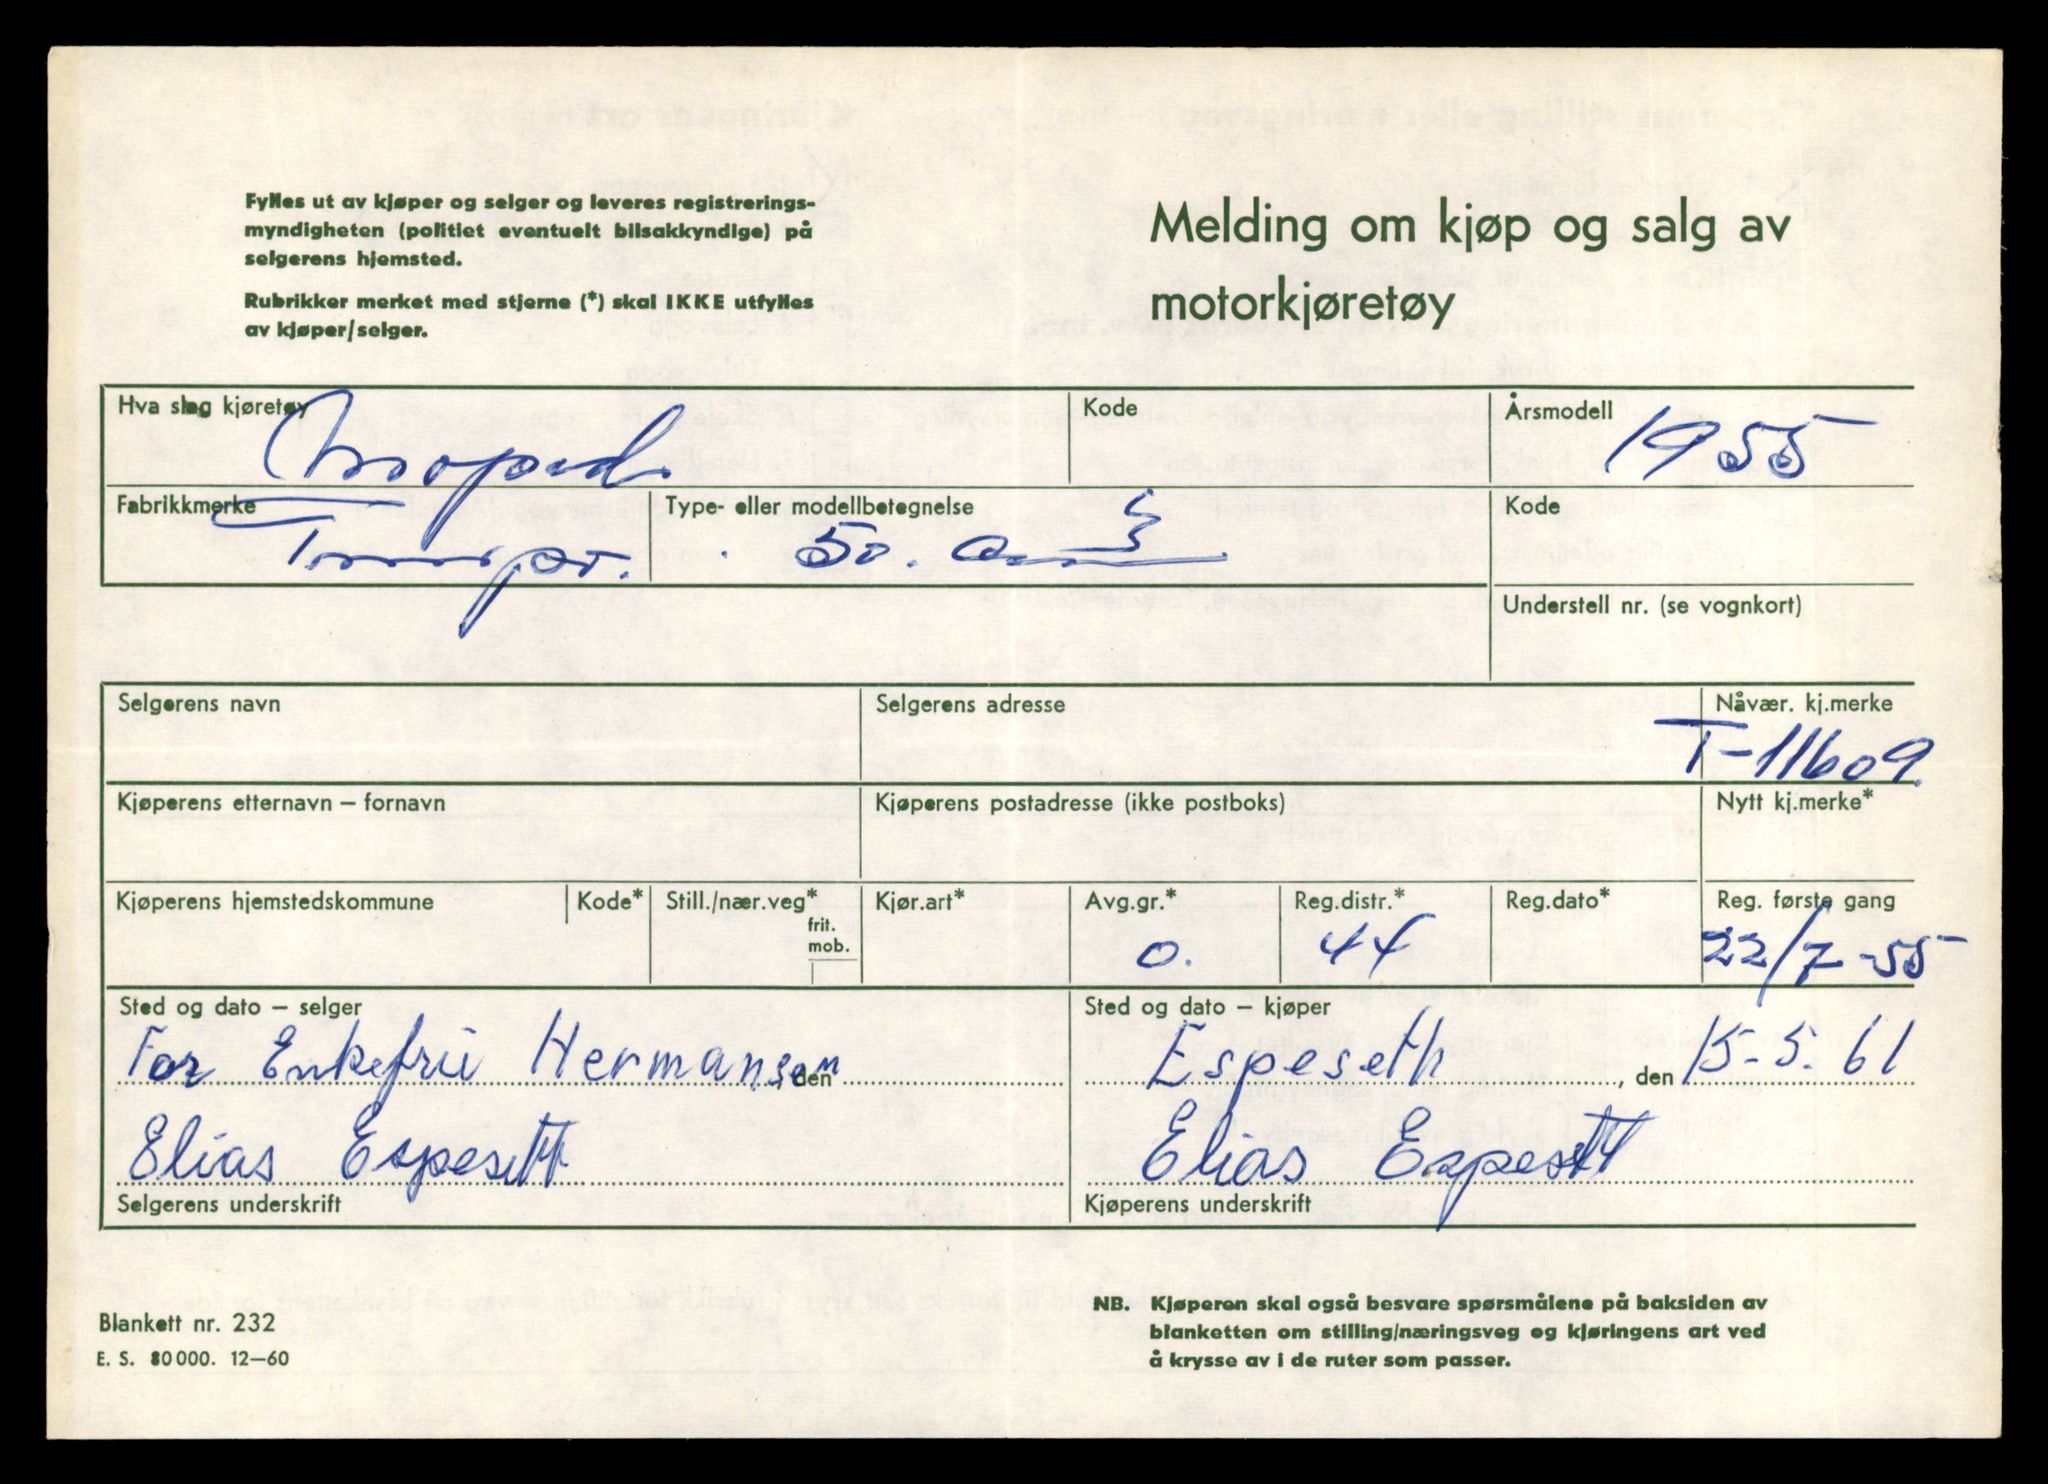 Fylles ut av kjøper og selger og leveres registrerings-
myndigheten (politiet eventuelt bilsakkyndige) på
selgerens hjemsted.
Rubrikker merket med stjerne (*) skal IKKE utfylles
av kjøper/selger.
Melding om kjøp og salg av
motorkjøretøy
Hva slag kjøretøy
Moped
Kode
Årsmodell
1955
Fabrikkmerke
Tempo.
Type- eller modellbetegnelse
50. cm3
Kode
Understell nr. (se vognkort)
Selgerens navn
Selgerens adresse
Nåvær. kj.merke
T-11609.
Kjøperens etternavn – fornavn
Kjøperens postadresse (ikke postboks)
Nytt kj.merke*
Kjøperens hjemstedskommune
Kode*
Still./nær.veg*
frit.
mob.
Kjør.art*
Avg.gr.*
0.
Reg.distr.*
44
Reg.dato*
Reg. første gang
22/7-55
Sted og dato – selger
For Enkefru Hermansen, den
Elias Espeseth
Selgerens underskrift
Sted og dato – kjøper
Espeseth, den 15-5. 61
Elias Espeseth
Kjøperens underskrift
Blankett nr. 232
E. S. 80 000. 12–60
NB. Kjøperen skal også besvare spørsmålene på baksiden av
blanketten om stilling/næringsveg og kjøringens art ved
å krysse av i de ruter som passer.